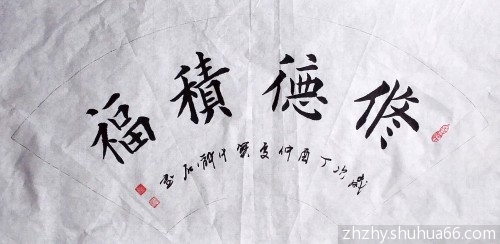 修德積福
歲次丁酉仲夏
zhzhy.shuhua66.com